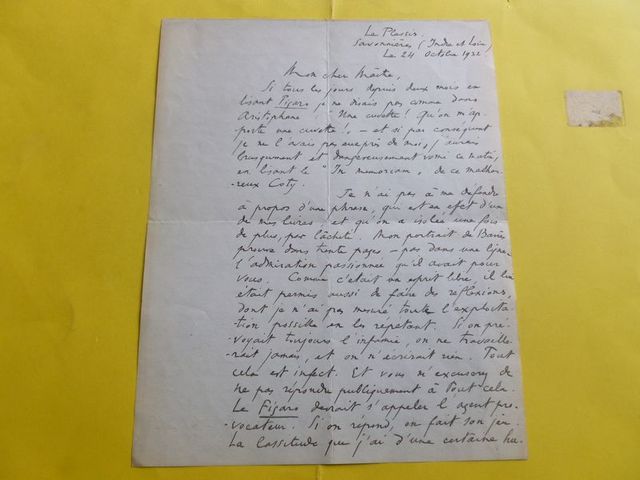 Le Plessis
Savonnières (Indre et Loire)
Le 24 Octobre 1932
Mon cher Maître,
Si tous les jours depuis deux mois en
lisant Figaro je ne disais pas comme dans
Aristophane : "Une cuvette ! Qu'on m'ap-
porte une cuvette !, - et si par conséquent
je ne l'avais pas auprès de moi, j'aurais
brusquement et dangereusement vomi ce matin,
en lisant le "In memoriam, de ce malheu-
-reux Coty.
Je n'ai pas à me défendre
à propos d'une phrase, qui est en effet d'un
de mes livres et qu'on a isolée une fois
de plus, par lâcheté. Mon portrait de Barrès
prouve dans trente pages - pas dans une ligne
l'admiration passionnée qu'il avait pour
vous. Comme c'était un esprit libre, il lui
était permis aussi de faire des réflexions,
dont je n'ai pas mesuré toute l'exploita-
tion possible en les répétant. Si on pré-
voyait toujours l'infamie, on ne travaille-
rait jamais, et on n'écrirait rien. Tout
cela est infect. Et vous m'excuserez de
ne pas répondre publiquement à tout cela.
Le Figaro devrait s'appeler l'agent pro-
-vocateur. Si on répond, on fait son jeu.
La lassitude que j'ai d'une certaine hu-